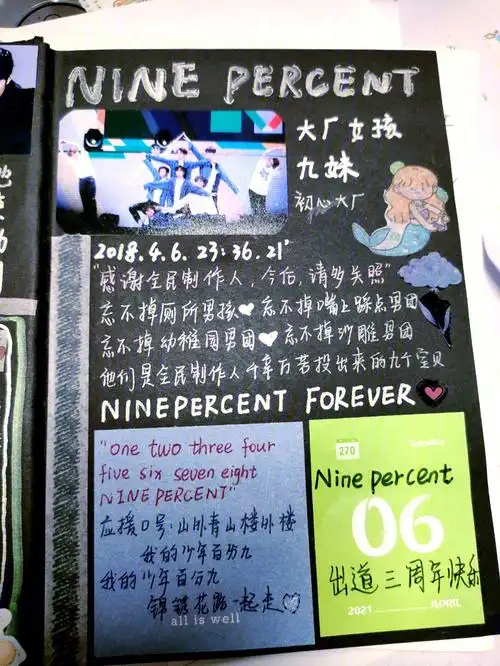 NINE PERCENT
大厂女孩
九妹
初心大厂
2018.4.6. 23:36.21'
"感谢全民制作人，今后，请多关照"
忘不掉厕所男孩♥ 忘不掉嘴上踩点男团
忘不掉幼稚园男团♥ 忘不掉沙雕男团
他们是全民制作人千辛万苦投出来的九个宝贝
NINEPERCENT FOREVER
"one two three four
five six seven eight
NINE PERCENT"
应援口号:山外青山楼外楼
我的少年百分九
我的少年百分九
锦绣花路一起走♡
all is well
270
Nine percent
06
出道三周年快乐
2021
APRIL